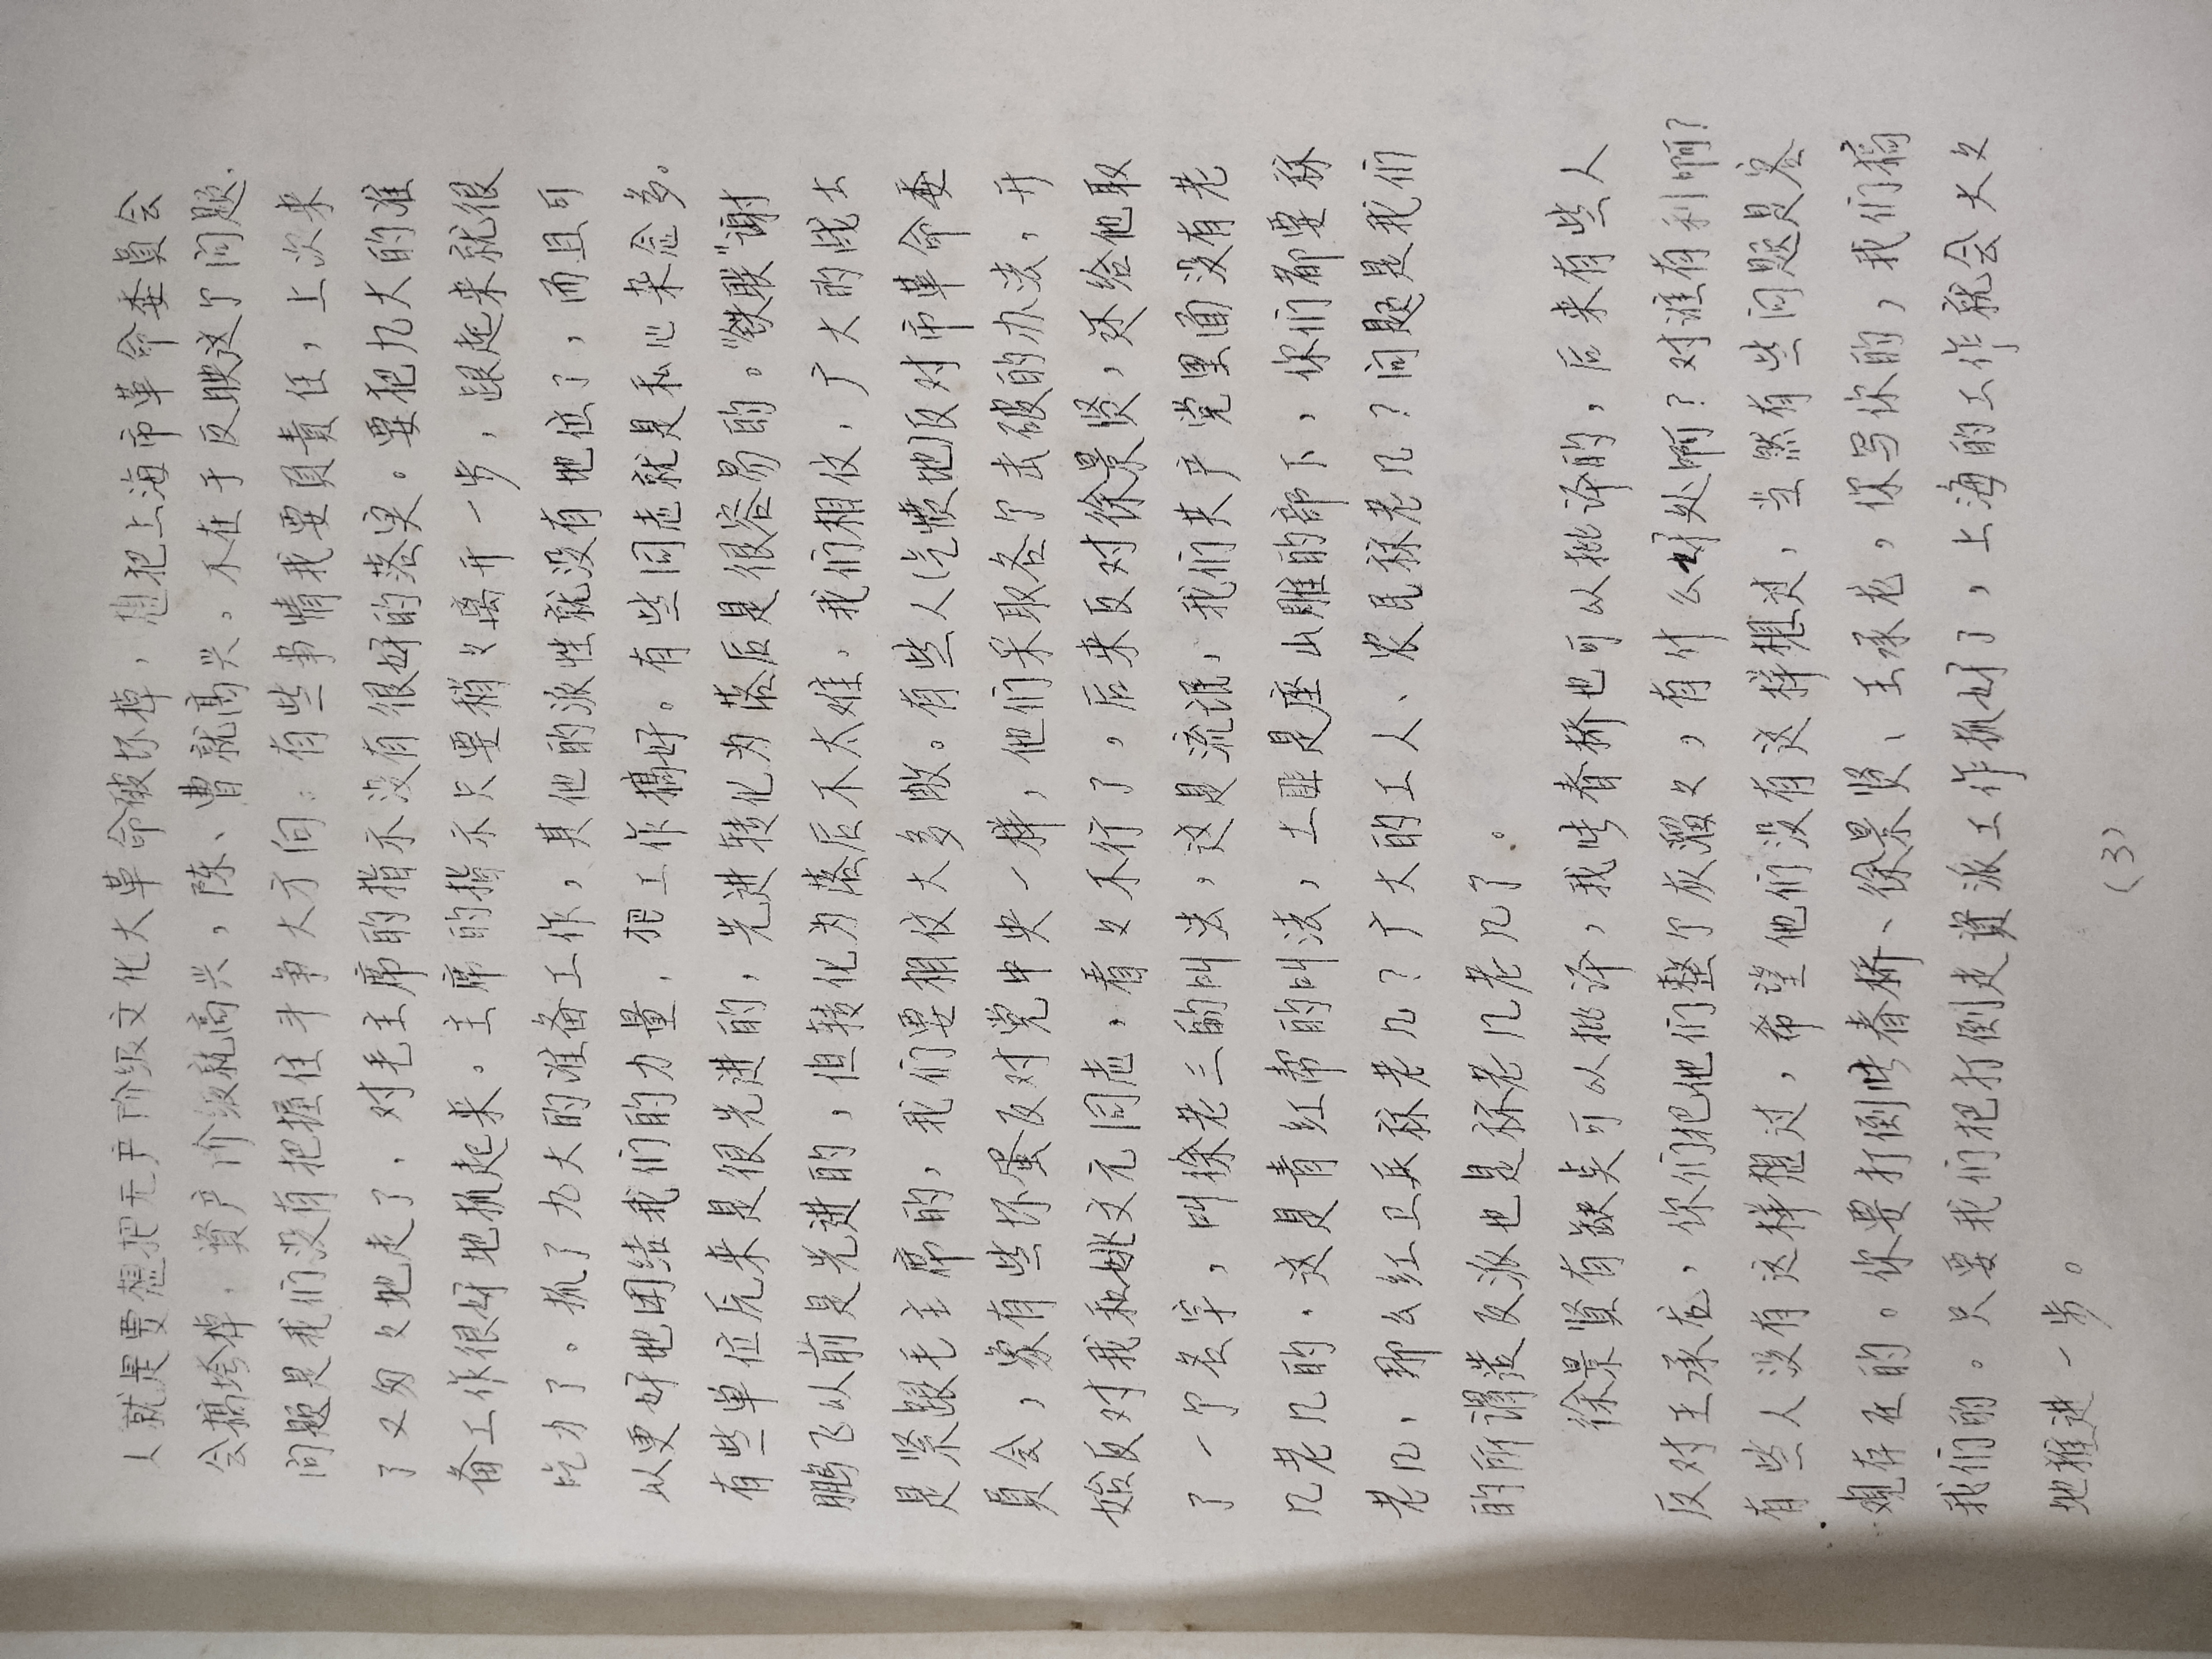 人就是要想把无产阶级文化大革命破坏掉，想把上海市革命委員会
会搞垮掉，資产阶级就高兴，陈、曹就高兴。不在于反映这个问题，
问题是我们没有把握住斗争大方向。有些事情我要負責任，上次来
了又匆々地走了，对毛主席的指示没有很好的落实。要把九大的准
备工作很好地抓起来。主席的指示只要稍々离开一步，跟起来就很
吃力了。抓了九大的准备工作，其他的派性就没有地位了，而且可
以更好地团结我们的力量，把工作搞好。有些同志就是私心杂念多。
有些单位原来是很先进的，先进转化为落后是很容易的。“铁联”谢
鹏飞以前是先进的，但转化为落后不太难。我们相仪，广大的战士
是紧跟毛主席的，我们要相仪大多数。有些人(气愤地)反对市革命委
員会，象有些坏蛋反对党中央一样，他们采取各个击破的办法，开
始反对我和姚文元同志，看々不行了，后来反对徐景贤，还给他取
了一个名字，叫徐老三的叫法，这是流氓，我们共产党里面没有老
几老几的。这是青红帮的叫法，土匪是座山雕的部下，你们都要称
老几，那么红卫兵称老几？广大的工人、农民称老几？问题是我们
的所谓造反派也是称老几老几了。
徐景贤有缺点可以批评，我张春桥也可以批评的，后来有些人
反对王承龙，你们把他们整个灰溜々，有什么好处啊？对谁有利啊？
有些人没有这样想过，希望他们没有这样想过，当然有些问题是客
观存在的。你要打倒张春桥、徐景贤、王承龙，你写你的，我们搞
我们的。只要我们把打倒走資派工作抓好了，上海的工作就会大々
地推进一步。
(3)